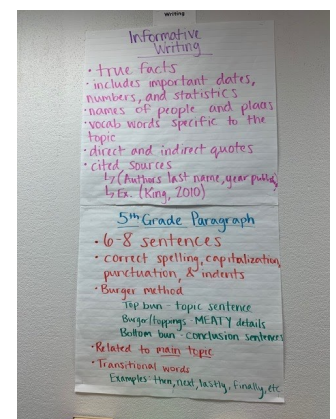 Writing
Informative
Writing
• true facts
• includes important dates,
numbers, and statistics
• names of people and places
• vocab words specific to the
topic
• direct and indirect quotes
• cited sources
↳ (Authors last name, year publish)
↳ Ex. (King, 2010)
5th Grade Paragraph
• 6-8 sentences
• correct spelling, capitalization,
punctuation, & indents
• Burger method
Top bun - topic sentence
Burger/toppings - MEATY details
Bottom bun - conclusion sentences
• Related to main topic
• Transitional words
Examples: then, next, lastly, finally, etc